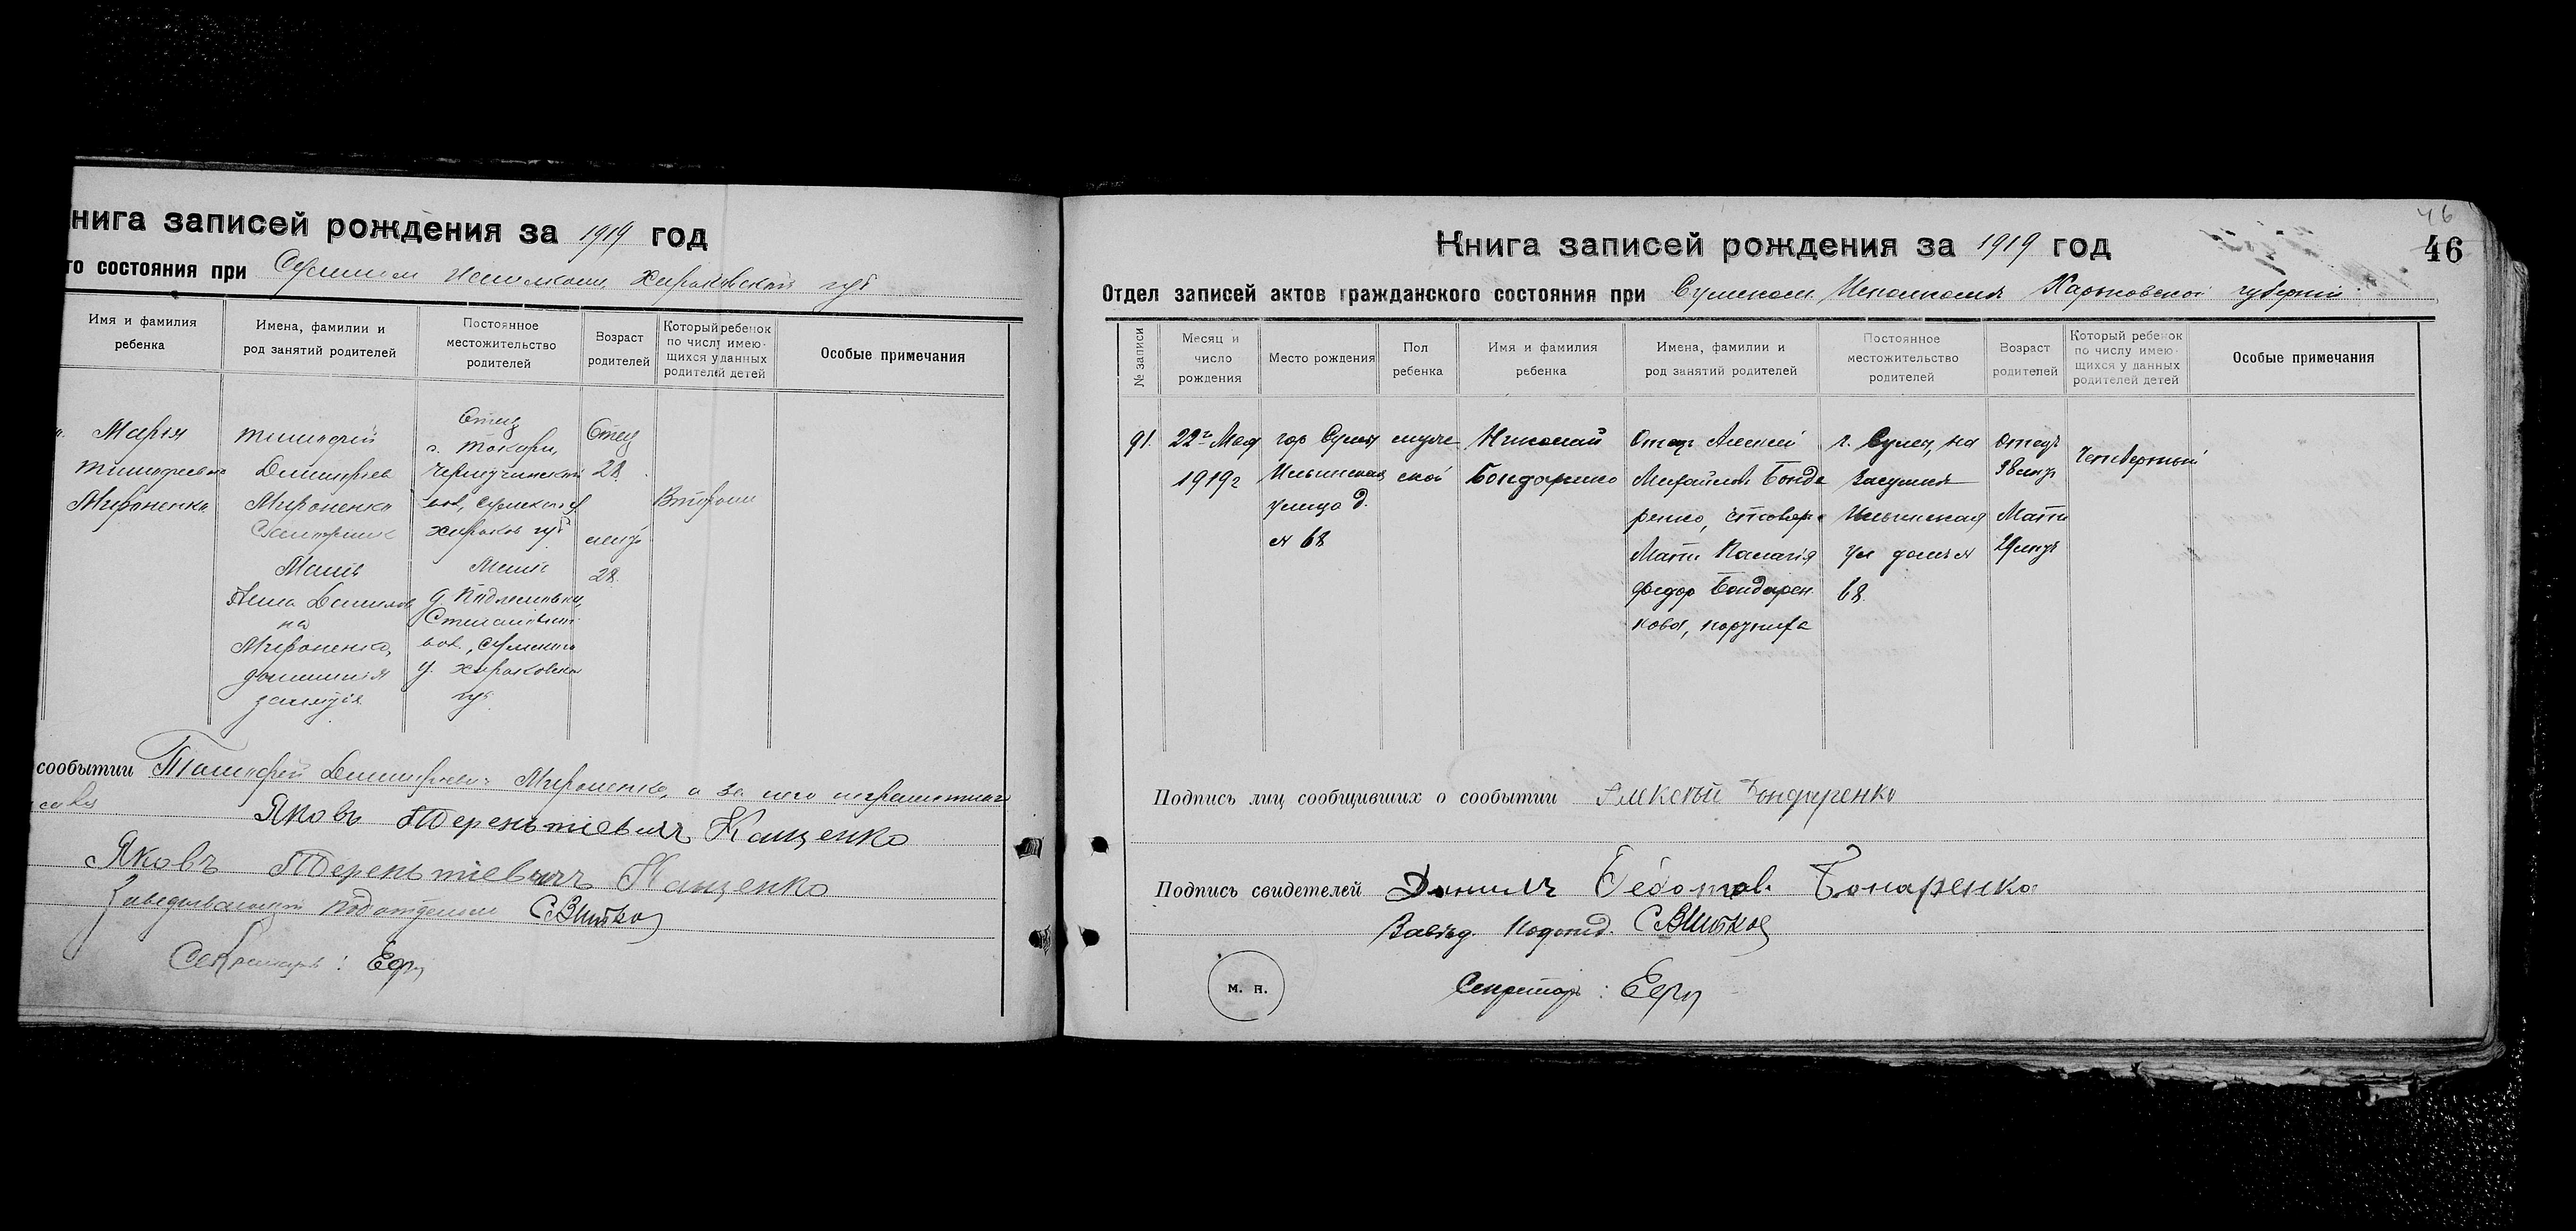 нига записей рождения за 1919 год
го состояния при Сумском Исполкоме Харьковской губ
Имя и фамилия ребенка
Имена, фамилии и род занятий родителей
Постоянное местожительство родителей
Возраст родителей
Который ребенок по числу имеющихся у данных родителей детей
Особые примечания
Мария
Тимофеевна
Мироненко
Тимофей
Димитриев
Мироненко
Мать
Анна Данилов
на
Мироненко,
домашния
занятія
Отец
с. Токари,
вов, Сумского у
Харьков губ
Мать
вов., Сумского
у. Харьковской
губ.
Отец
28.
мать
28.
Вторым
сообытии Тимофей Димитриевич Мироненко, а за него неграмотного
Яковъ Терентіевичъ Кащенко
Яковъ Терентіевичъ Кащенко
Заведывающий подотделом
Секретарь:
46
Книга записей рождения за 1919 год
46
Отдел записей актов гражданского состояния при Сумском Исполкоме Харьковской губернии
№ записи
Месяц и число рождения
Место рождения
Пол ребенка
Имя и фамилия ребенка
Имена, фамилии и род занятий родителей
Постоянное местожительство родителей
Возраст родителей
Который ребенок по числу имеющихся у данных родителей детей
Особые примечания
91.
22го Мая
1919г
гор Сумы
Ильинская
улица д.
№ 68
муж
ской
Николай
Бондаренко
Отец Алексей
Михайлов Бонда
ренко,
Мать Палагія
Федор Бондарен
кова,
г. Сумы, на
Засумки
Ильинская
ул дом №
68.
Отецъ
38 летъ
Мать
29 летъ
Четвертый
Подпись лиц сообщивших о сообытии Алексей Бондаренко
Подпись свидетелей Данилъ Федотов. Бонаренко
Завѣд. Подотд.
м. п.
Секретарь: